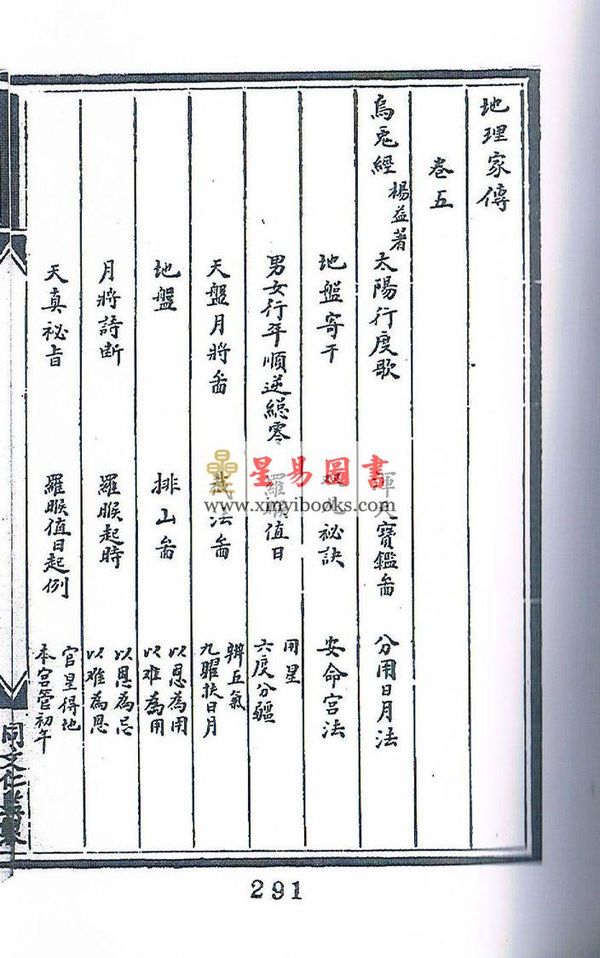 地理家傳
卷五
烏兎經 楊益著 太陽行度歌 渾天寶鑑啚 分用日月法
地盤寄干 秘訣 安命宮法
男女行年順逆緫零 羅睺值日 用星 六度分疆
天盤月將啚 法啚 辨五氣 九曜扶日月
地盤 排山啚 以恩為用 以难為用
月將詩断 羅睺起時 以恩為忌 以难為恩
天真祕旨 羅睺值日起例 官星得地 本宮管初年
星易圖書
www.xinyibooks.com
291